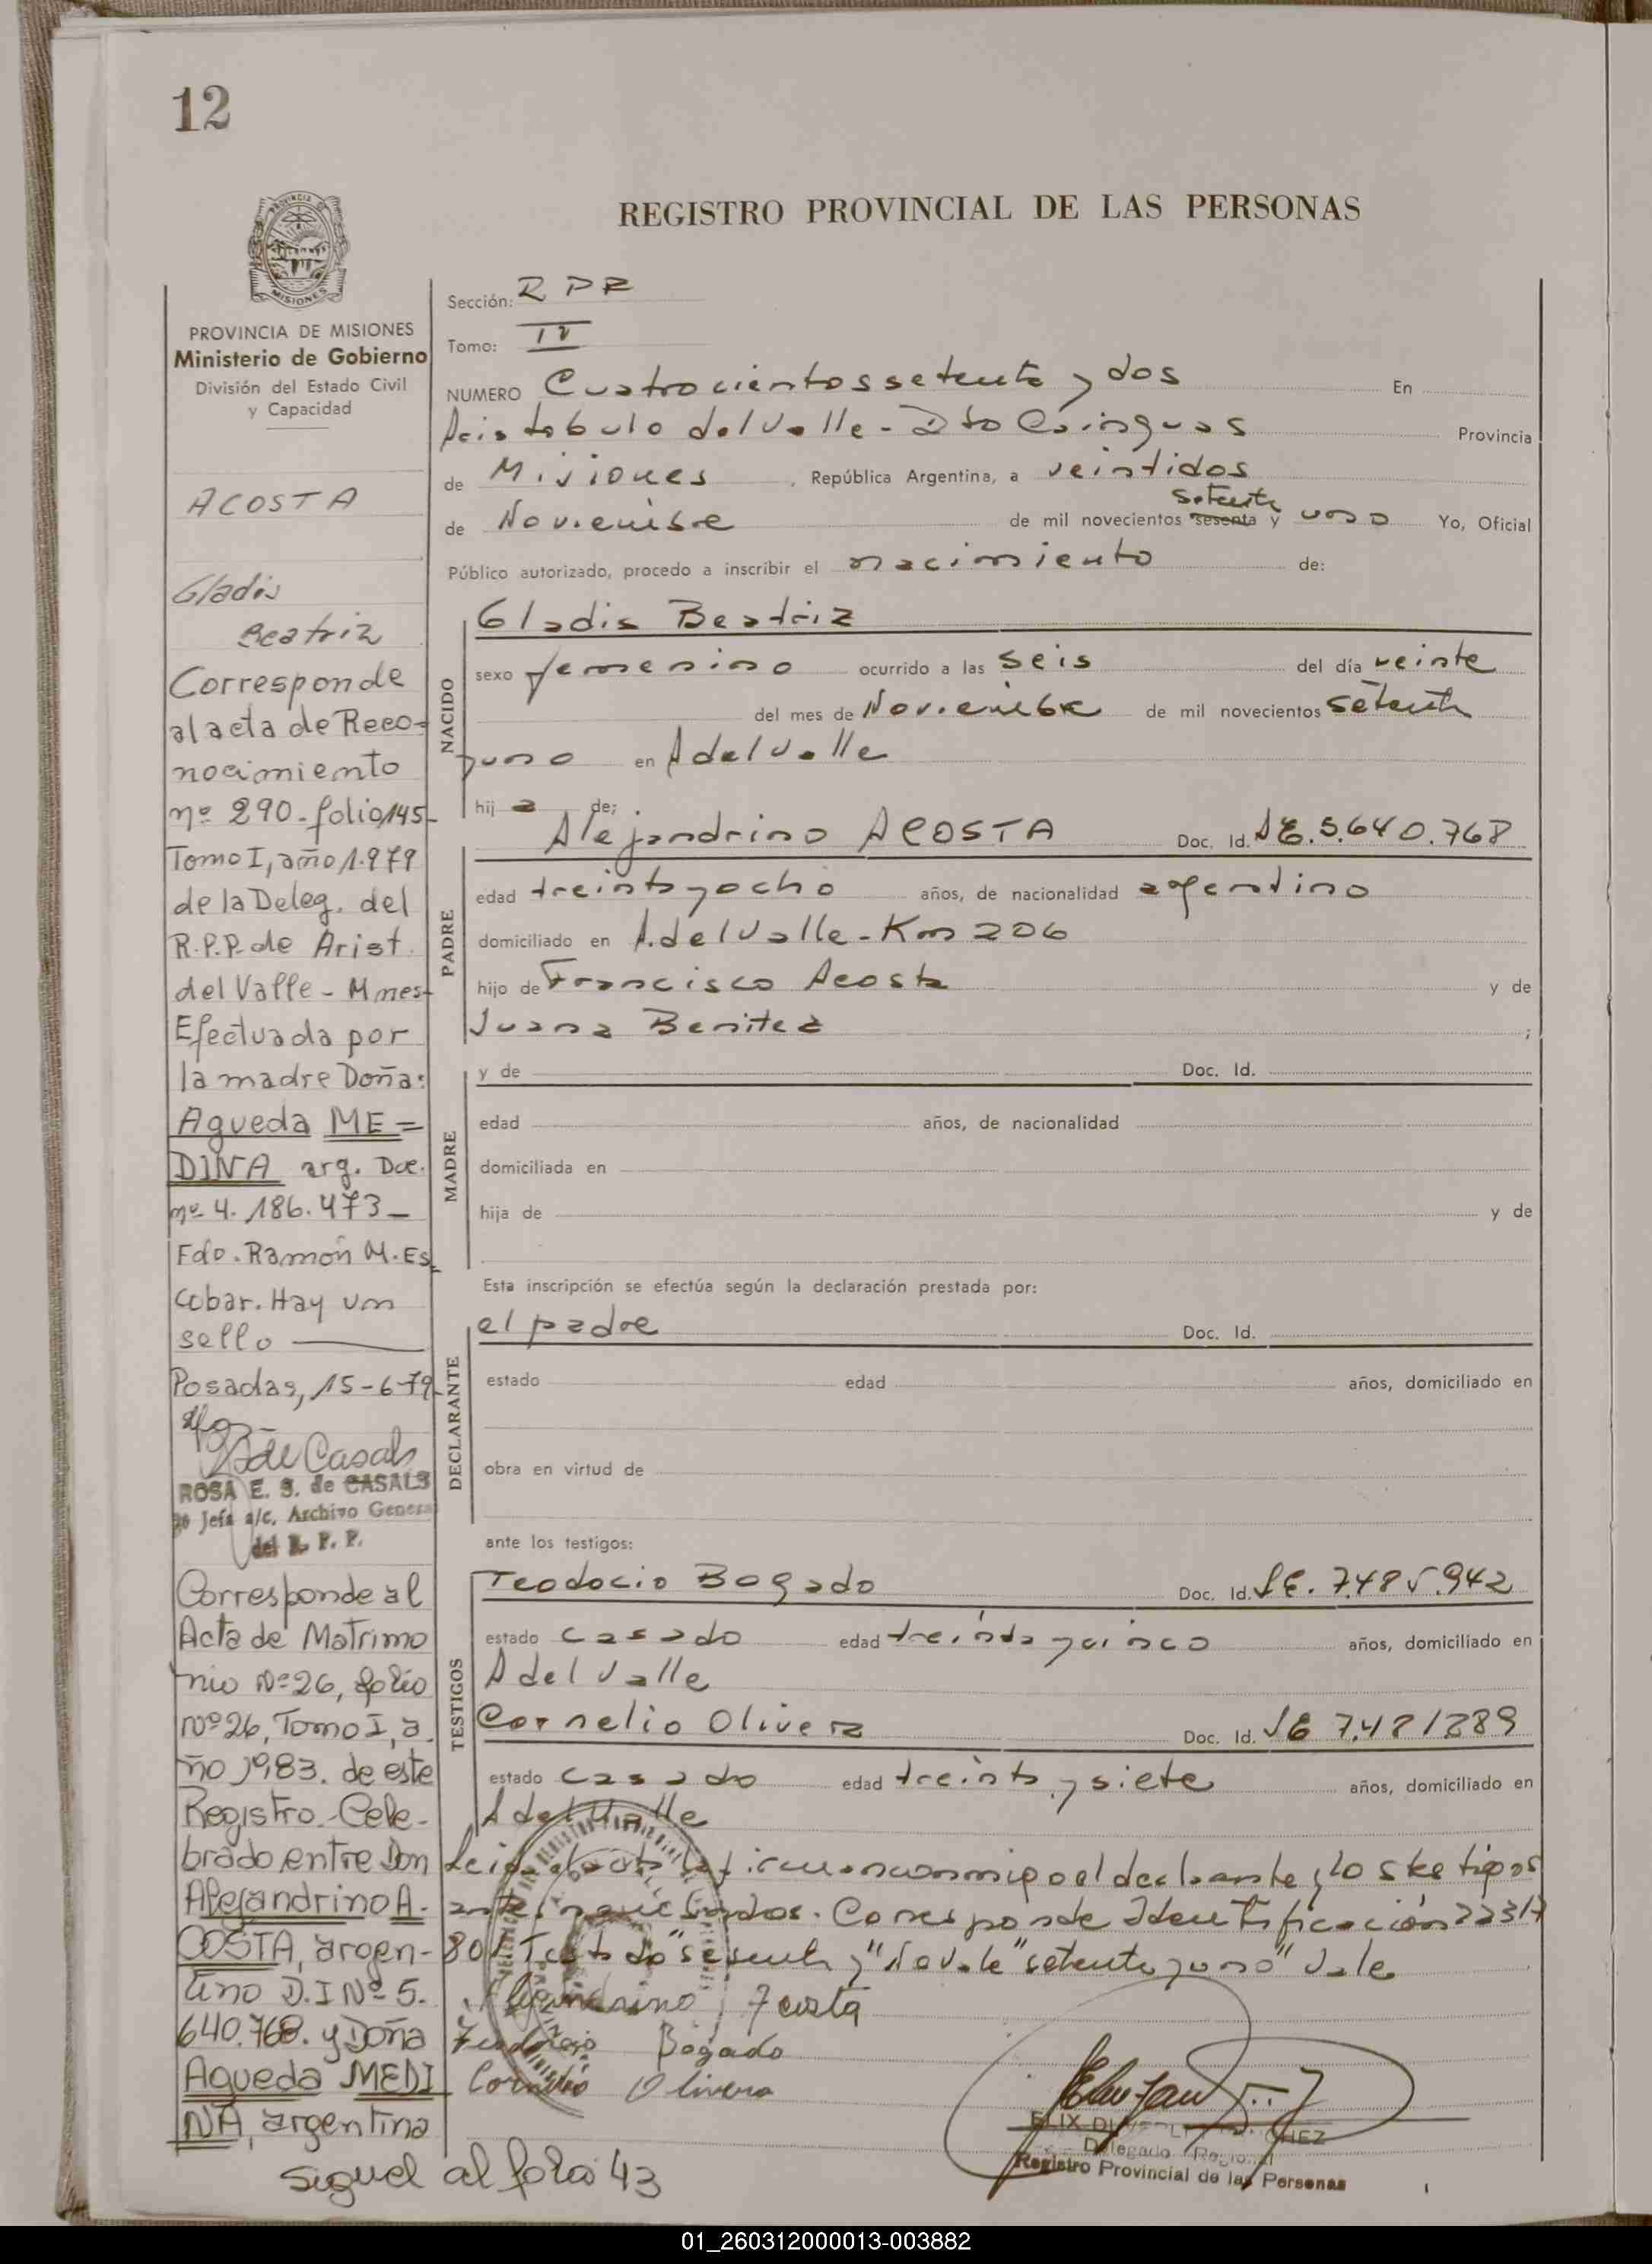 12
REGISTRO PROVINCIAL DE LAS PERSONAS
PROVINCIA DE MISIONES
Ministerio de Gobierno
División del Estado Civil
y Capacidad
ACOSTA
Gladis
Beatriz
Corresponde
al acta de Reco-
nocimiento
nº 290-folio 145-
Tomo I, año 1.979
de la Deleg. del
R.P.P. de Arist.
del Valle - Mnes-
Efectuada por
la madre Doña:
Agueda ME=
DINA arg. Doc.
nº 4.186.473-
Fdo. Ramón M. Es
cobar. Hay un
sello
Posadas, 15-6-79
de Casals
ROSA E. S. de CASALS
Jefa a/c. Archivo General
del R. P. P.
Corresponde al
Acta de Matrimo
nio Nº 26, folio
Nº 26, Tomo I, a
ño 1983. de este
Registro-Cele-
brado entre Don
Alejandrino A-
COSTA, argen-
tino D.I Nº 5.
640.768. y Doña
Agueda MEDI
NA, argentina
Sección: R P P
Tomo: IV
NUMERO Cuatrocientos setenta y dos En
Aristobulo del Valle - Dto Cainguas Provincia
de Misiones, República Argentina, a veintidos
setenta
de Noviembre de mil novecientos sesenta y uno Yo, Oficial
Público autorizado, procedo a inscribir el nacimiento de:
NACIDO
Gladis Beatriz
sexo femenino ocurrido a las seis del día veinte
del mes de Noviembre de mil novecientos setenta
y uno en A del Valle
hija de;
PADRE
Alejandrino ACOSTA Doc. Id. LE. 5.640.768
edad treinta y ocho años, de nacionalidad argentino
domiciliado en A. del Valle - Km 206
hijo de Francisco Acosta y de
Juana Benitez ;
MADRE
y de Doc. Id.
edad años, de nacionalidad
domiciliada en
hija de y de
Esta inscripción se efectúa según la declaración prestada por:
DECLARANTE
el padre Doc. Id.
estado edad años, domiciliado en
obra en virtud de
ante los testigos:
TESTIGOS
Teodocio Bogado Doc. Id. LE. 7.485.942
estado casado edad treinta y cinco años, domiciliado en
A del Valle
Cornelio Olivera Doc. Id. LE 7.481289
estado casado edad treinta y siete años, domiciliado en
A del Valle
Leida el acta la firman conmigo el declarante y los testigos
antes nombrados. Corresponde Identificación 22317
801 Testado "sesenta y" No vale "setenta y uno" Vale
Alejandrino Acosta
Teodocio Bogado
Cornelio Olivera
Delegado Regional
Registro Provincial de las Personas
sigue al folio 43
01_260312000013-003882